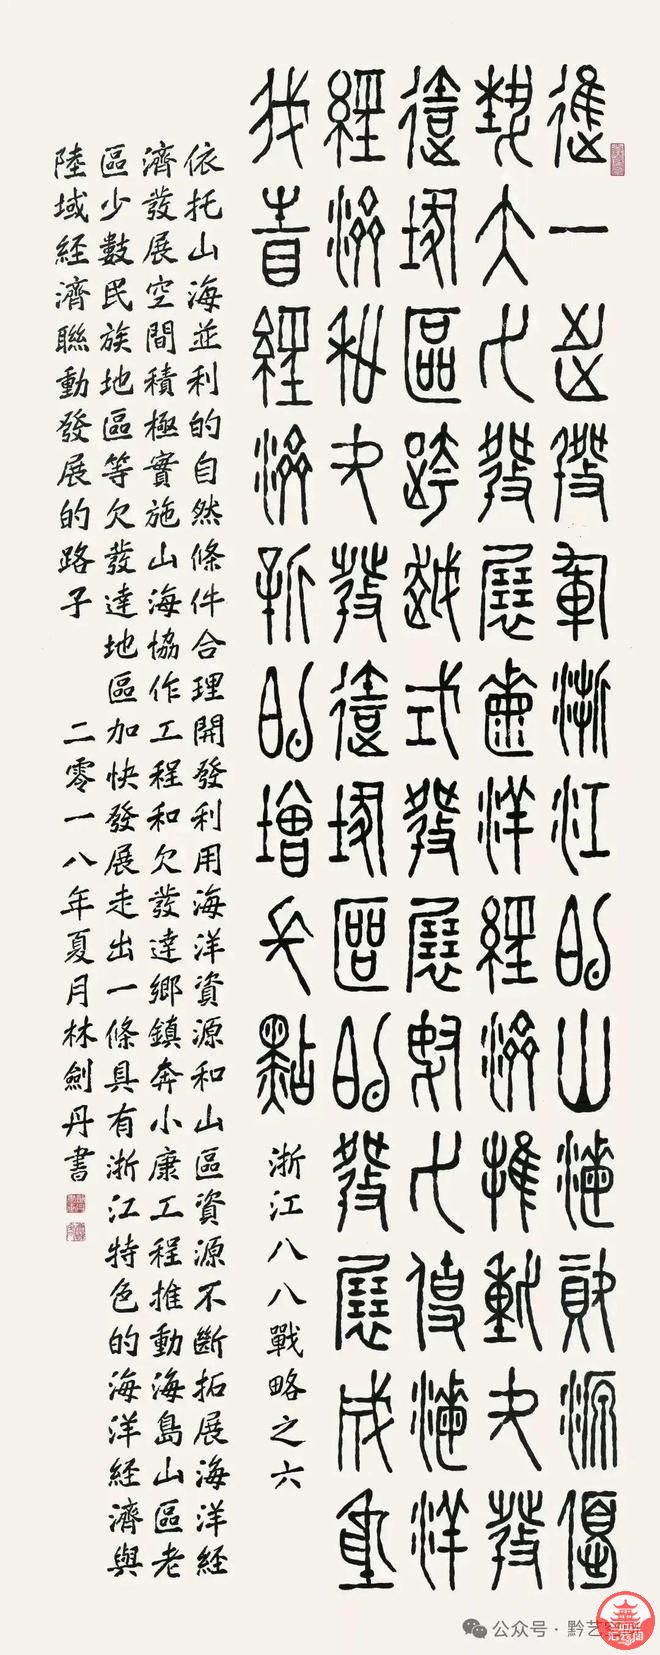 進一步發揮浙江的山海資源優
勢大力發展海洋經濟推動欠發
達地區跨越式發展努力使海洋
經濟和欠發達地區的發展成為
我省經濟新的增長點 浙江八八戰略之六
依托山海並利的自然條件合理開發利用海洋資源和山區資源不斷拓展海洋經
濟發展空間積極實施山海協作工程和欠發達鄉鎮奔小康工程推動海島山區老
區少數民族地區等欠發達地區加快發展走出一條具有浙江特色的海洋經濟與
陸域經濟聯動發展的路子 二零一八年夏月林劍丹書
公众号·黔艺